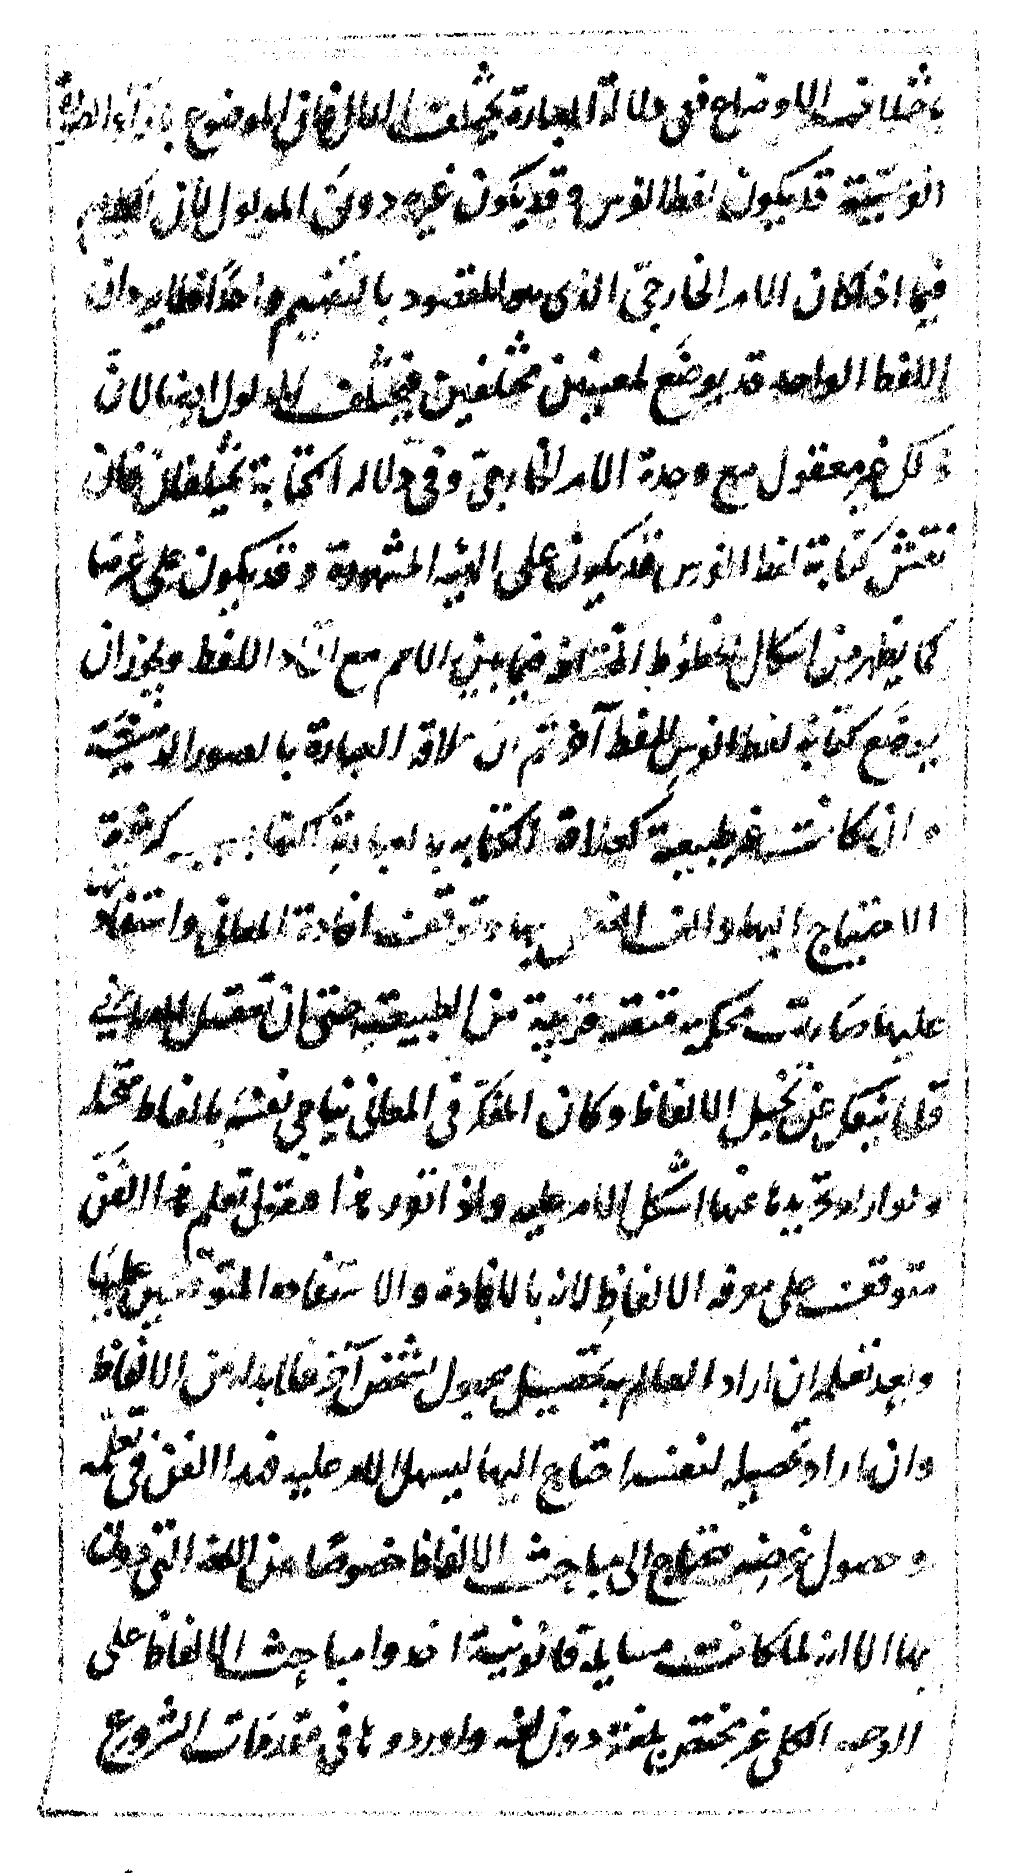 باختلاف الاوضاع ففى دلالة العبارة يختلف الدال فان الموضوع بازاء الصورة
الذهنية قد يكون لفظ الفرس وقد يكون غيره دون المدلول لان الكلام
فيما اذا كان الامر الخارجى الذى هو المقصود بالتفهيم واحدا فلا يرد ان
اللفظ الواحد قد يوضع لمعنيين مختلفين فيختلف المدلول ايضا لان
ذلك غير معقول مع وحدة الامر الخارجى وفى دلالة الكتابة يختلفان فان
نقش كتابة لفظ الفرس قد يكون على الهيئة المشهورة وقد يكون على غيرها
كما يظهر من اشكال الخطوط المختلفة فيما بين الامم مع اتحاد اللفظ ويجوز ان
يوضع كتابة لفظ الفرس للفظ آخر ثم ان علاقة العبارة بالصور الذهنية
وان كانت غير طبيعية كعلاقة الكتابة بالعبارة لكنها كثرة
الاحتياج اليها والف النفس بها وتوقف افادة المعانى واستفادتها
عليها صارت محكمة متقنة قريبة من الطبيعية حتى ان تعقل المعانى
قلما ينفك عن تخيل الالفاظ وكان المفكر فى المعانى يناجى نفسه بالفاظ متخيلة
ولو اراد تجريدها عنها اشكل الامر عليه واذا تقرر هذا فنقول تعلم هذا الفن
متوقف على معرفة الالفاظ لانه بالافادة والاستفادة المتوقفين عليها
وبعد تعلمه ان اراد العالم به تحصيل مجهول لشخص آخر فلا بد له من الالفاظ
وان اراد تحصيله لنفسه احتاج اليها ليسهل الامر عليه فهذا الفن فى تعلمه
وحصول غرضه محتاج الى مباحث الالفاظ خصوصا من اللغة التى دون
بها الا انه لما كانت مسايله قانونية اخذوا مباحث الالفاظ على
الوجه الكلى غير مختص بلغة دون لغة واوردوها فى مقدمات الشروع